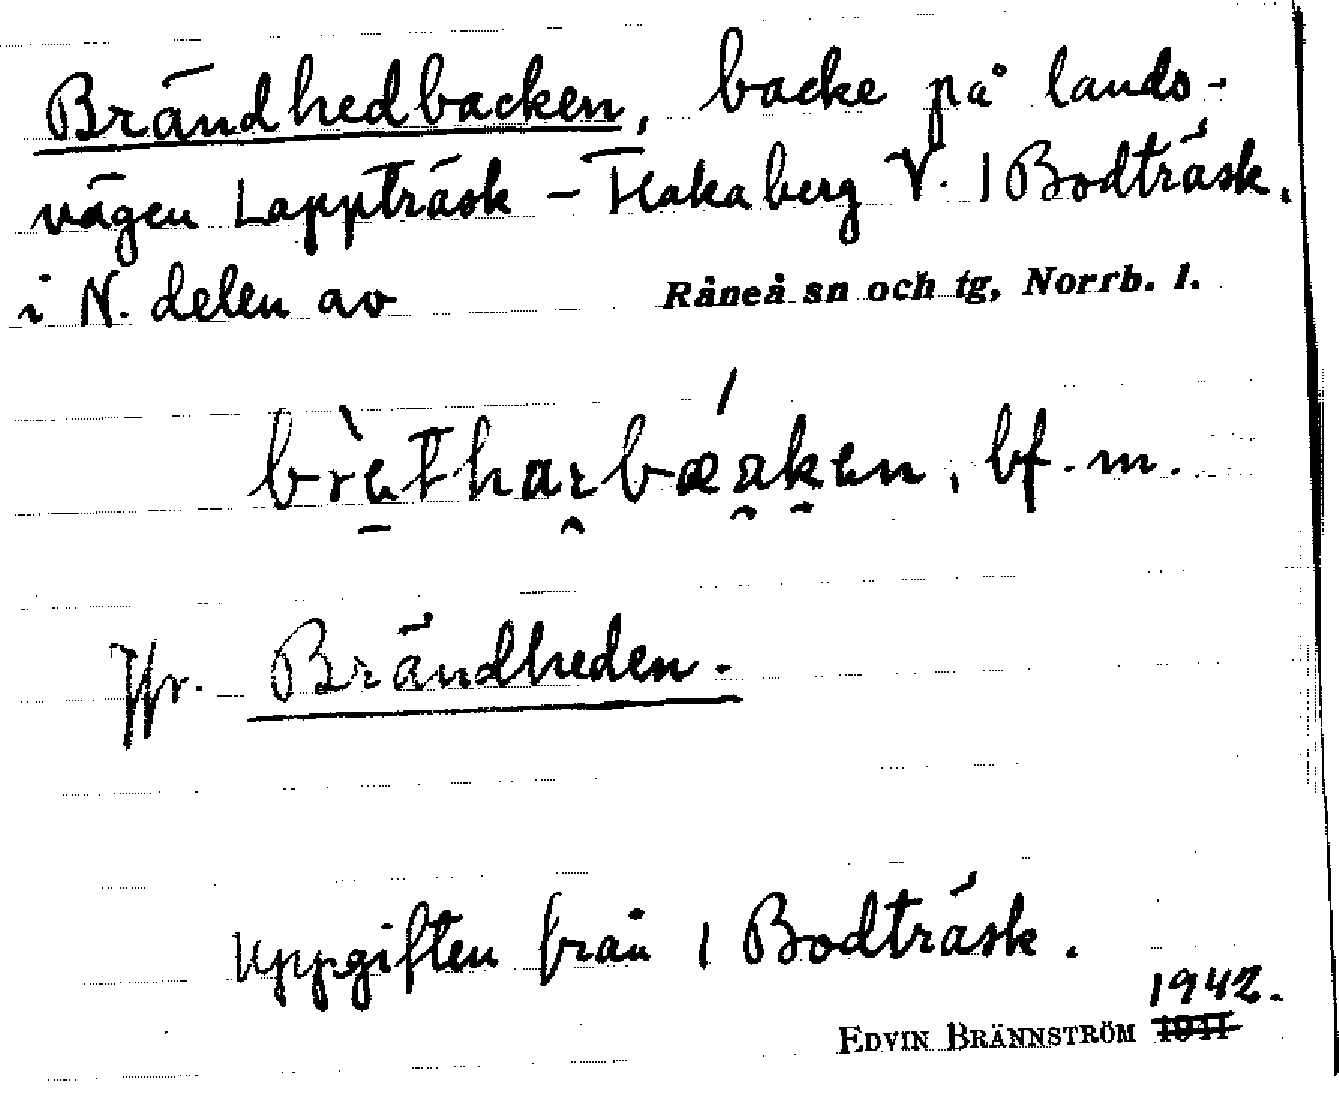 Brändhedbacken, backe på lands-
vägen Lappträsk – Hakaberg V. 1 Bodträsk.
i N. delen av Råneå sn och tg, Norrb. l.
bf. m.
Jfr. Brändheden.
Uppgiften från 1 Bodträsk.
1942.
EDVIN BRÄNNSTRÖM 1941